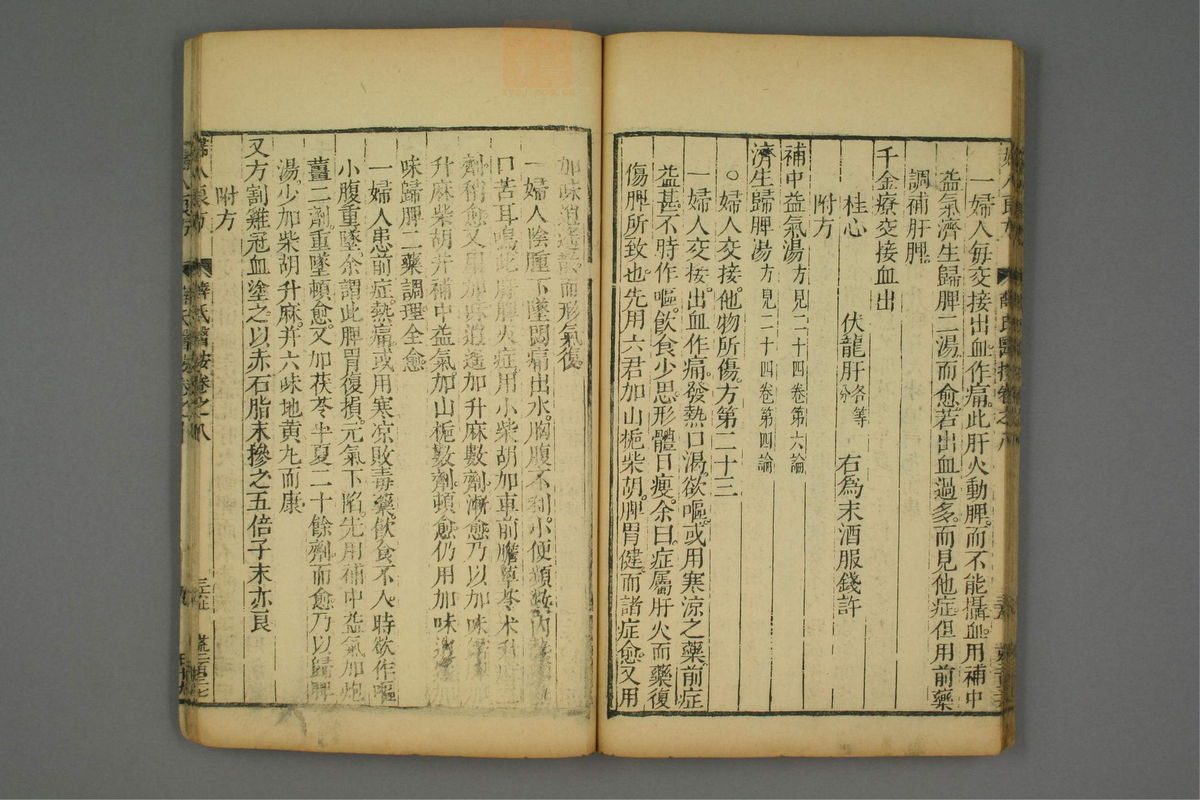 一婦人每交接出血作痛此肝火動脾而不能攝血用補中
益氣濟生歸脾二湯而愈若出血過多而見他症但用前藥
調補肝脾
千金療交接血出
桂心 伏龍肝各等分 右爲末酒服錢許
附方
補中益氣湯方見二十四卷第六論
濟生歸脾湯方見二十四卷第四論
○婦人交接他物所傷方第二十三
一婦人交接出血作痛發熱口渴欲嘔或用寒凉之藥前症
益甚不時作嘔飲食少思形體日瘦余曰症屬肝火而藥復
傷脾所致也先用六君加山梔柴胡脾胃健而諸症愈又用
加味逍遙散而形氣復
一婦人陰腫下墜悶痛出水胸腹不利小便頻數內熱
口苦耳鳴此肝脾火症用小柴胡加車前膽草苓术升麻
劑稍愈又用加味逍遙加升麻數劑漸愈乃以加味
升麻柴胡并補中益氣加山梔數劑頓愈仍用加味逍遙
味歸脾二藥調理全愈
一婦人患前症熱痛或用寒凉敗毒藥飲食不入時欲作嘔
小腹重墜余謂此脾胃復損元氣下陷先用補中益氣加炮
薑二劑重墜頓愈又加茯苓半夏二十餘劑而愈乃以歸脾
湯少加柴胡升麻并六味地黄丸而康
又方割雞冠血塗之以赤石脂末摻之五倍子末亦良
附方
婦人良方 薛氏醫按卷之八